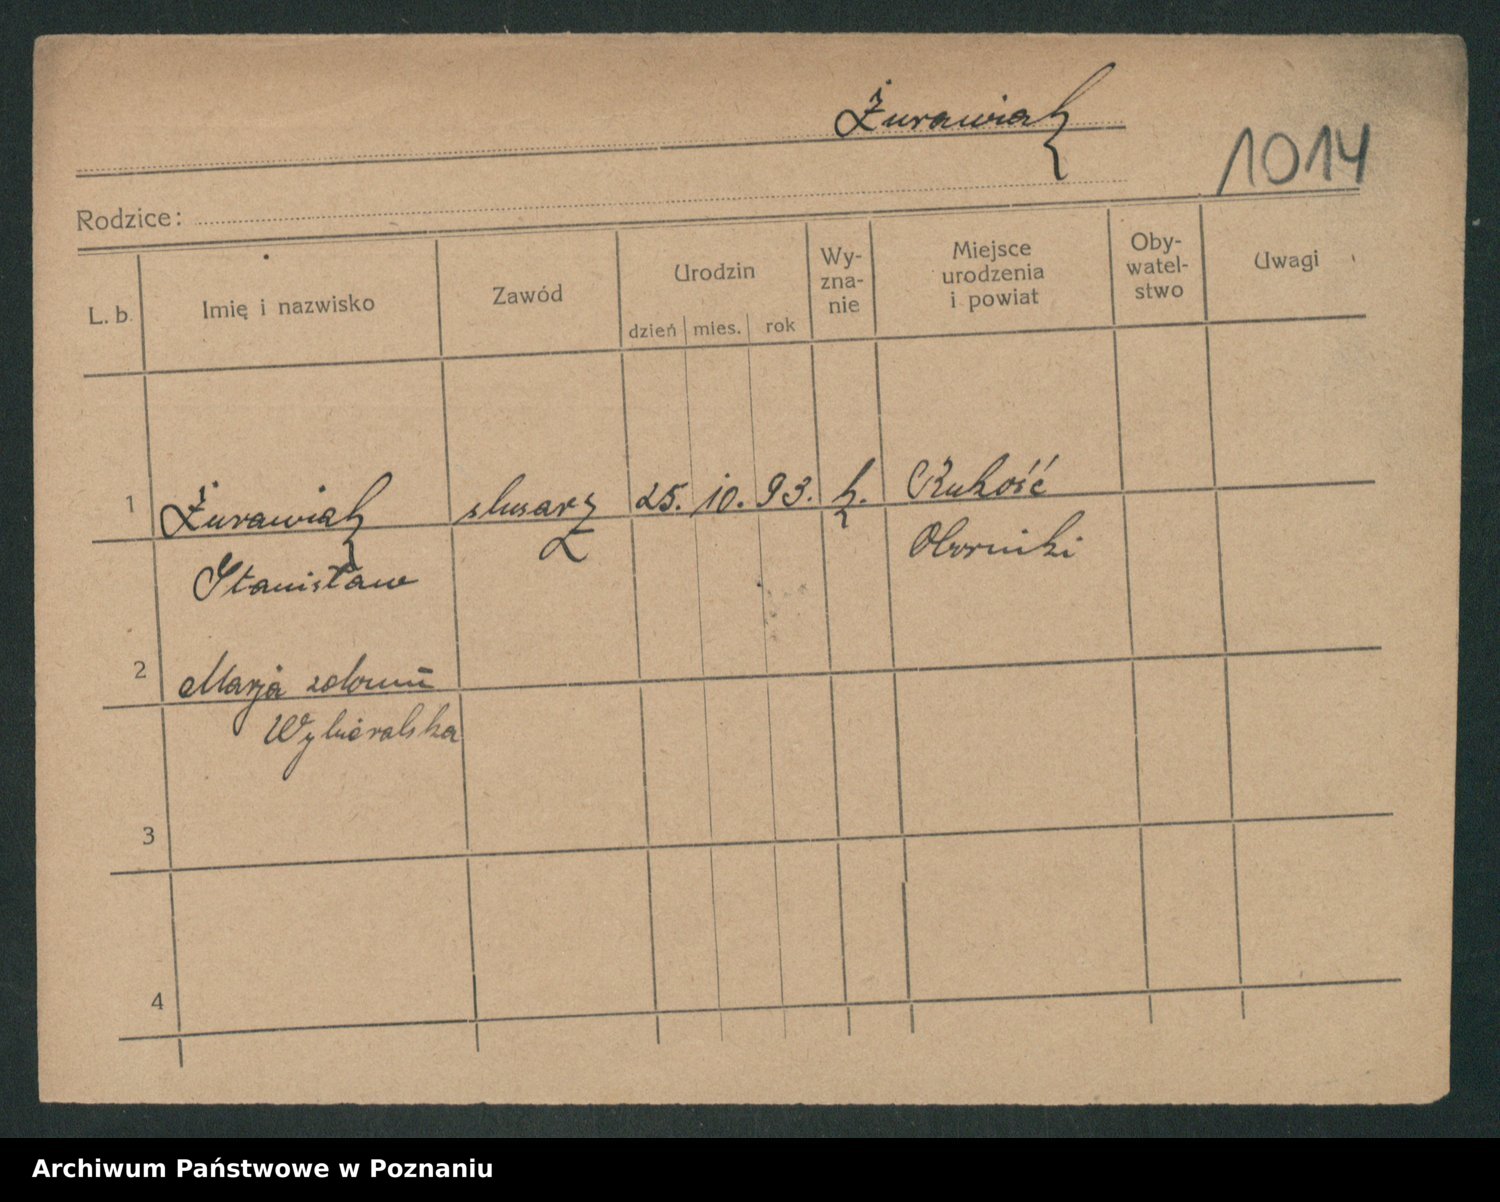 Żurawiak
1014
Rodzice:
L. b.
Imię i nazwisko
Zawód
Urodzin
dzień mies. rok
Wy-
zna-
nie
Miejsce
urodzenia
i powiat
Oby-
watel-
stwo
Uwagi
1 Żurawiak ślusarz 25. 10. 93. k.
Stanisław Oborniki
2 Marja
Wybieralska
3
4
Archiwum Państwowe w Poznaniu